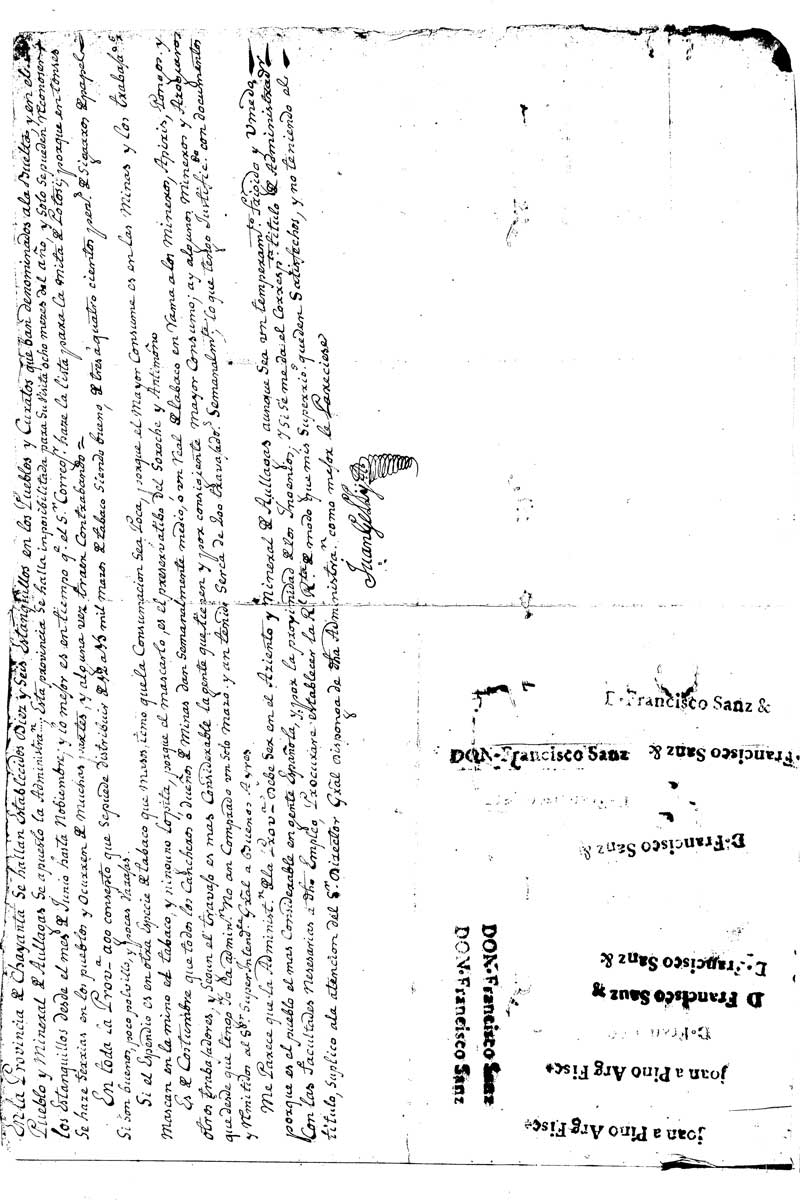 En la Provincia & Chayanta Se hallan Establecidos Diez y Seis Estanquillos en los Pueblos y Curatos que ban denominados ala Buelta, y en el
Pueblo y Mineral & Aullagas Se apuesto la Administraⁿ, esta provincia Se halla imposibilitada para Su Visita ocho meses del año, y Solo Se pueden reconocer
los Estanquillos desde el mes & Junio hasta Nobiembre, y lo mejor es en tiempo qᵉ. el Sʳ. Corregʳ. haze la lista para la mita & Potosi, porque entonses
Se haze ferxias en los pueblos y Ocurren & Muchas partes, y alguna vez traen Contrabando=
En toda la Provᵃ ago consento que Sepuede distribuir & mil mazos & tabaco Siendo bueno, & tres á quatro cientos pens. & Sigarros & papel
Si son buenos, poco polvillo, y pocas Varajas.
Si el Espendio es en otra Especie & tabaco que Mazo, temo que la Consumacion Sea Poca, porque el Mayor Consumo es en las Minas y los trabajos
Mascan en la mina el tabaco, y ninguno lo pita, porque el mascarlo, es el preservatibo del Soroche y Antimonio
Es & Costumbre que todos los Cancheros ó dueños & Minas dan Semanalmente medio, ó un Real & tabaco en Rama alos Mineros, Apixis, Pongos y
otros trabaxadores, y Segun el travajo es mas Considerable la gente que tienen y por consigiente mayor Consumo; ay algunos Mineros y Azogueros
que desde que tengo Yo la adminⁿ. No an Comprado un Solo Mazo, y an tenido Serca de 200 travajadˢ. Semanalmᵗᵉ, lo que tengo Justificᵈᵒ con documentos
y remitidos al Sᵒʳ. Super Intendᵗᵉ Gral a Buenos Ayres
Me Parece que la Administⁿ. & la Provᵃ Debe Ser en el Aziento y Mineral & Aullagas aunque Sea un temperamᵗᵒ. Fáidido y Umedo
porque es el pueblo el mas Considerable en gente Española, y por la proximidad & los Ingenios, y Si Se me da el Correspᵗᵉ titulo & Administradʳ
Con las facultades Nesesarias a dho Empleo, Procurare establecer la Rˡ. Rᵗᵃ. & modo que mis Superioˢ. queden Satisfechos, y no teniendo el
titulo, Suplico ala atencion del Sʳ. Director Gral disponga de dha Administraⁿ. como mejor le Pareciese
Juan
D·Francisco Sanz &
DON·Francisco Sanz
Francisco Sanz &
D·Francisco Sanz &
DON·Francisco Sanz
DON·Francisco Sanz
D·Francisco Sanz &
D Francisco Sanz &
joan a Pino Arg Fisc
joan a Pino Arg Fisc